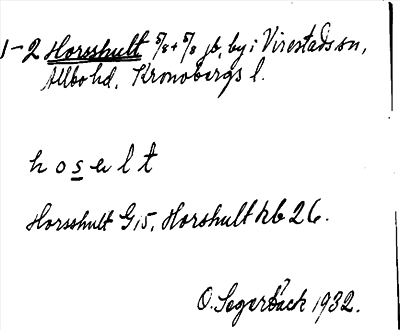 1-2 Horsshult 5/8 + 5/8 jb, by i Virestads sn,
Allbo hd, Kronobergs l.
hosult
Horsshult G15, Horshult kb 26.
O. Segerbäck 1932.